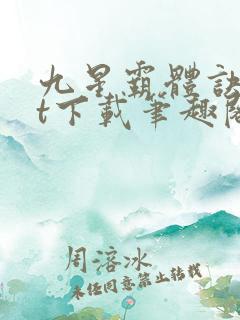 九星霸體訣
t下載筆趣閣
周溶冰
未经同意禁止转载